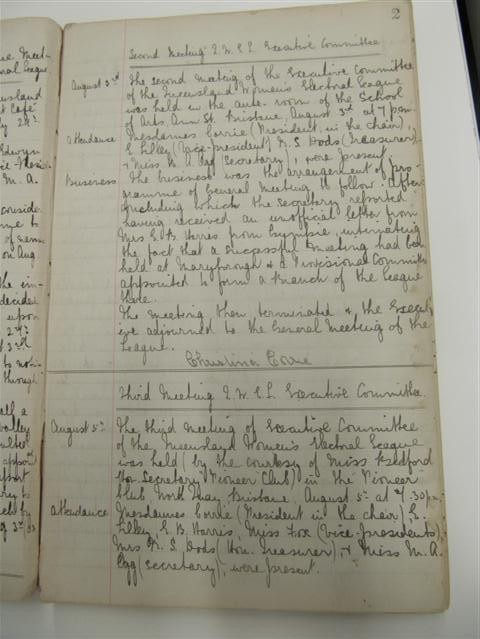 2
Second Meeting Q. W. E. L. Executive Committee
August 3rd The second meeting of the Executive Committee
of the Queensland Women's Electoral League
was held in the ante-room of the School
of Arts, Ann St. Brisbane, August 3rd at 7 p.m.
Attendance Mesdames Corrie (President, in the chair),
E. Lilley (Vice-president) E. S. Dods (Treasurer),
& Miss M. A. Ogg (Secretary), were present.
Business The business was the arrangement of pro-
gramme of General Meeting to follow. After
concluding which the Secretary reported
having received an unofficial letter from
Mrs G. B. Harris from Gympie, intimating
the fact that a successful meeting had been
held at Maryborough & a Provisional Committee
appointed to form a branch of the League
there.
The meeting then terminated & the Execut-
ive adjourned to the General Meeting of the
League.
Christina Corrie
Third Meeting Q. W. E. L. Executive Committee.
August 5th The third meeting of Executive Committee
of the Queensland Women's Electoral League
was held (by the courtesy of Miss Bedford
Hon Secretary Pioneer Club) in the Pioneer
Club North Quay Brisbane, August 5th at 7.30 p.m.
Attendance Mesdames Corrie (President in the chair), E.
Lilley, G. B. Harris, Miss Fox (vice-presidents),
Mrs E. S. Dods (Hon. Treasurer), & Miss M. A.
Ogg (Secretary), were present.